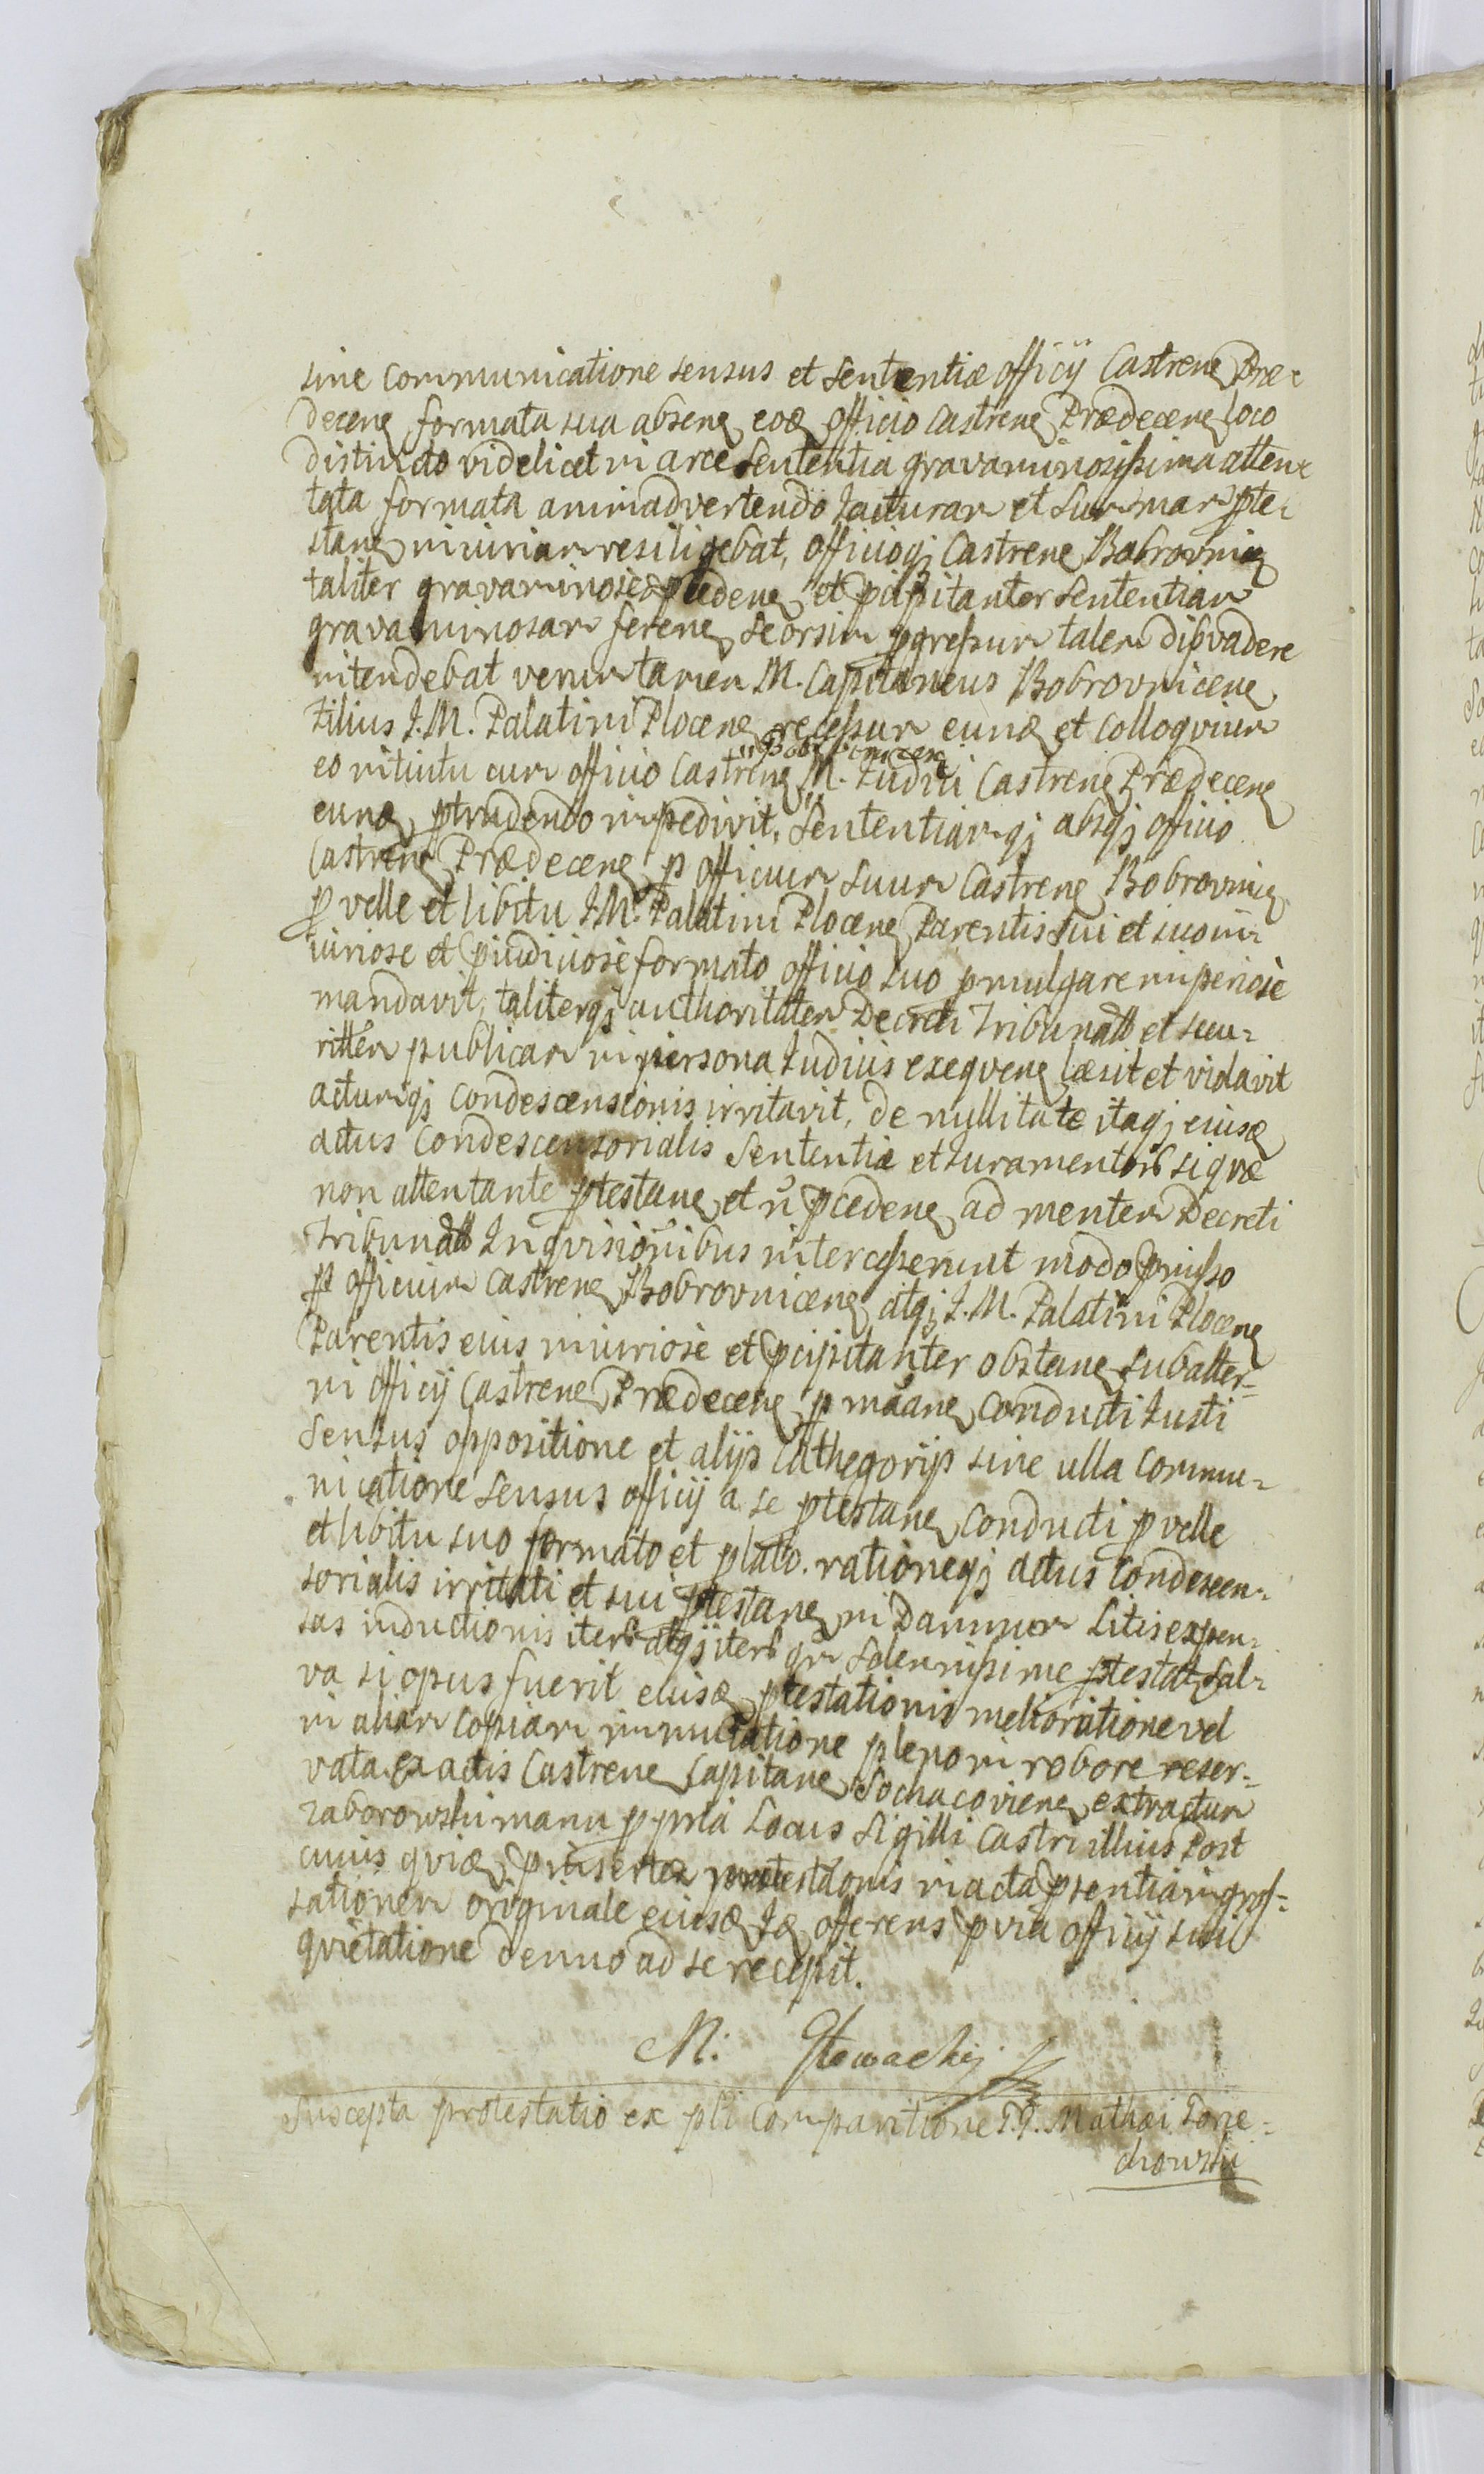 sine communicatione sensus et sententiæ officij Castrenẹ Præ-
decenẹ formata sua absenẹ eoꝫ officio Castrenẹ Prædecenẹ loco
distincto videlicet in arce sententia gravaminosissima atten-
tata formata animadvertendo iacturam et summam ptes-
tanẹ iniuriam resiligebat, officioqꝫ Castrene Bobrovnicẹ
taliter gravaminose pcedenẹ et pcipitanter sententiam
gravaminosam ferenẹ seorsim pgressum talem disvadere
intendebat verum tamen M. Capitaneus Bobrovnicenẹ
Filius I. M. Palatini Plocenẹ recessum eundꝫ et colloqvium
eo intuitu cum officio Castrenẹ Bobrovnicenẹ M. Iudici Castrenẹ Prædecenẹ
eundꝫ ptrudendo impedivit, sententiamqꝫ absqꝫ officio
Castrenẹ Prædecenẹ p officium suum Castrene Bobrovnicẹ
p velle et libitu I. M. Palatini Plocenẹ Parentis sui et suo in-
iuriose et piudiciose formato officio suo pmulgare imperiose
mandavit, taliterqꝫ authoritatem Decreti Tribunałł et secu-
ritem publicam in persona Iudicis exeqvenẹ læsit et violavit
actumqꝫ condescensionis irritavit, de nullitate itaqꝫ eiusdꝫ
actus condescensorialis sententiæ et iuramentorꝫ si qvæ
non attentante ptestanẹ et ñ pcedenẹ ad mentem Decreti
Tribunałł Inqvisiõnibus intercesserunt modo pmisso
p officium Castrene Bobrovnicenẹ atqꝫ I. M. Palatini Plocenẹ
Parentis eius iniuriose et pcipitanter obstanẹ subalter-
ni officij Castrenẹ Prædecenẹ p máanẹ conducti iusti
sensus oppositione et alijs cathegorijs sine ulla commu-
nicatione sensus officij a se ptestanẹ conducti p velle
et libitu suo formato et plato. rationeqꝫ actus condescen-
sorialis irritati et sui ptestanẹ in damnum litis expen-
sas inductionis iterꝫ atqꝫ iterꝫ qm̃ solennissime ptestat, sal-
va si opus fuerit eiusdꝫ ptestationis melioratione vel
in aliam copiam immutatione pleno in robore reser-
vata. ex actis Castrenẹ Capitanẹ Sochacovienẹ extractum
Zaborowski manu ppria Locus Sigilli Castri illius Post
cuius qvidꝫ pinsertæ protestãonis in acta psentia ingros-
sationem originale eiusdꝫ Idꝫ offerens p via officij sui
qvietatione denuo ad se recepit.
M. Głowacki
Suscepta protestatio ex pli comparitione G. Mathæi Torze-
chowski